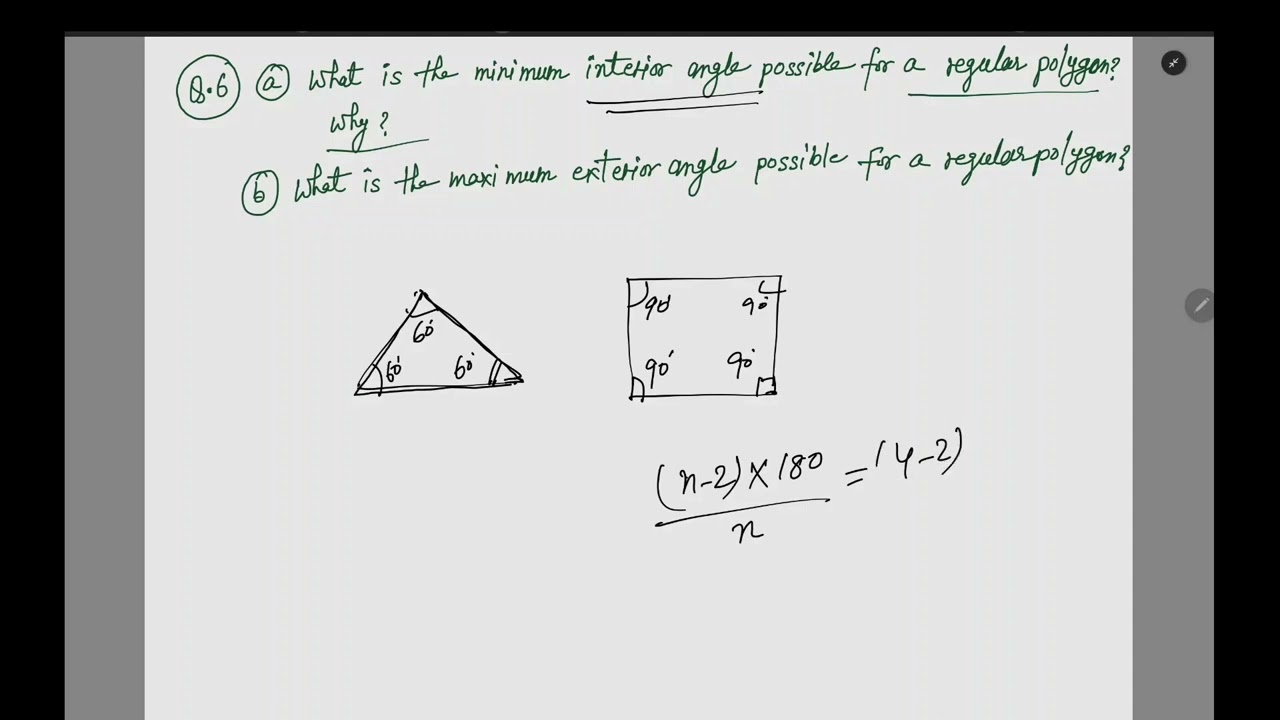 Q.6 (a) What is the minimum interior angle possible for a regular polygon?
Why?
(b) What is the maximum exterior angle possible for a regular polygon?
60°
60° 60°
90° 90°
90° 90°
(n-2)×180 = (4-2)
n